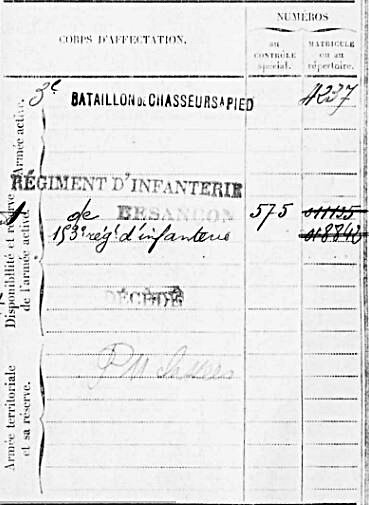 CORPS D'AFFECTATION.
NUMÉROS
au CONTRÔLE spécial.
MATRICULE ou au répertoire.
Armée active.
3e BATAILLON DE CHASSEURS A PIED 4237
Disponibilité et réserve de l'armée active.
RÉGIMENT D'INFANTERIE
de BESANCON 575 011135
153e régt d'infanterie 018843
DÉCÉDÉ
Armée territoriale et sa réserve.